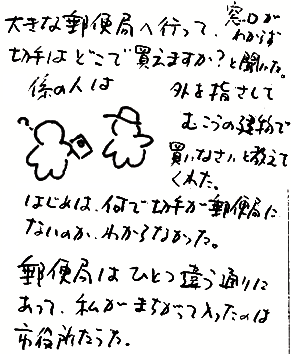 大きな郵便局へ行って、窓口が
わからず
切手はどこで買えますか？と聞いた。
係の人は
外を指さして
むこうの建物で
買いなさいと教えて
くれた。
?
はじめは、何で切手が郵便局に
ないのか、わからなかった。
郵便局はひとつ違う通りに
あって、私がまちがって入ったのは
市役所だった。